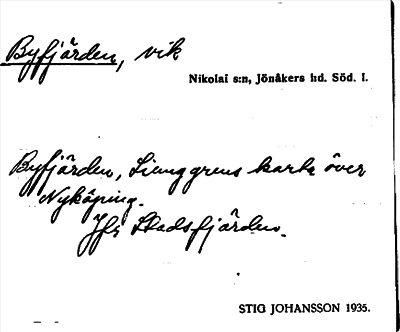 Byfjärden, vik
Nikolai s:n, Jönåkers hd. Söd. l.
Byfjärden, Ljunggrens karta över
Nyköping.
Jfr Stadsfjärden.
STIG JOHANSSON 1935.